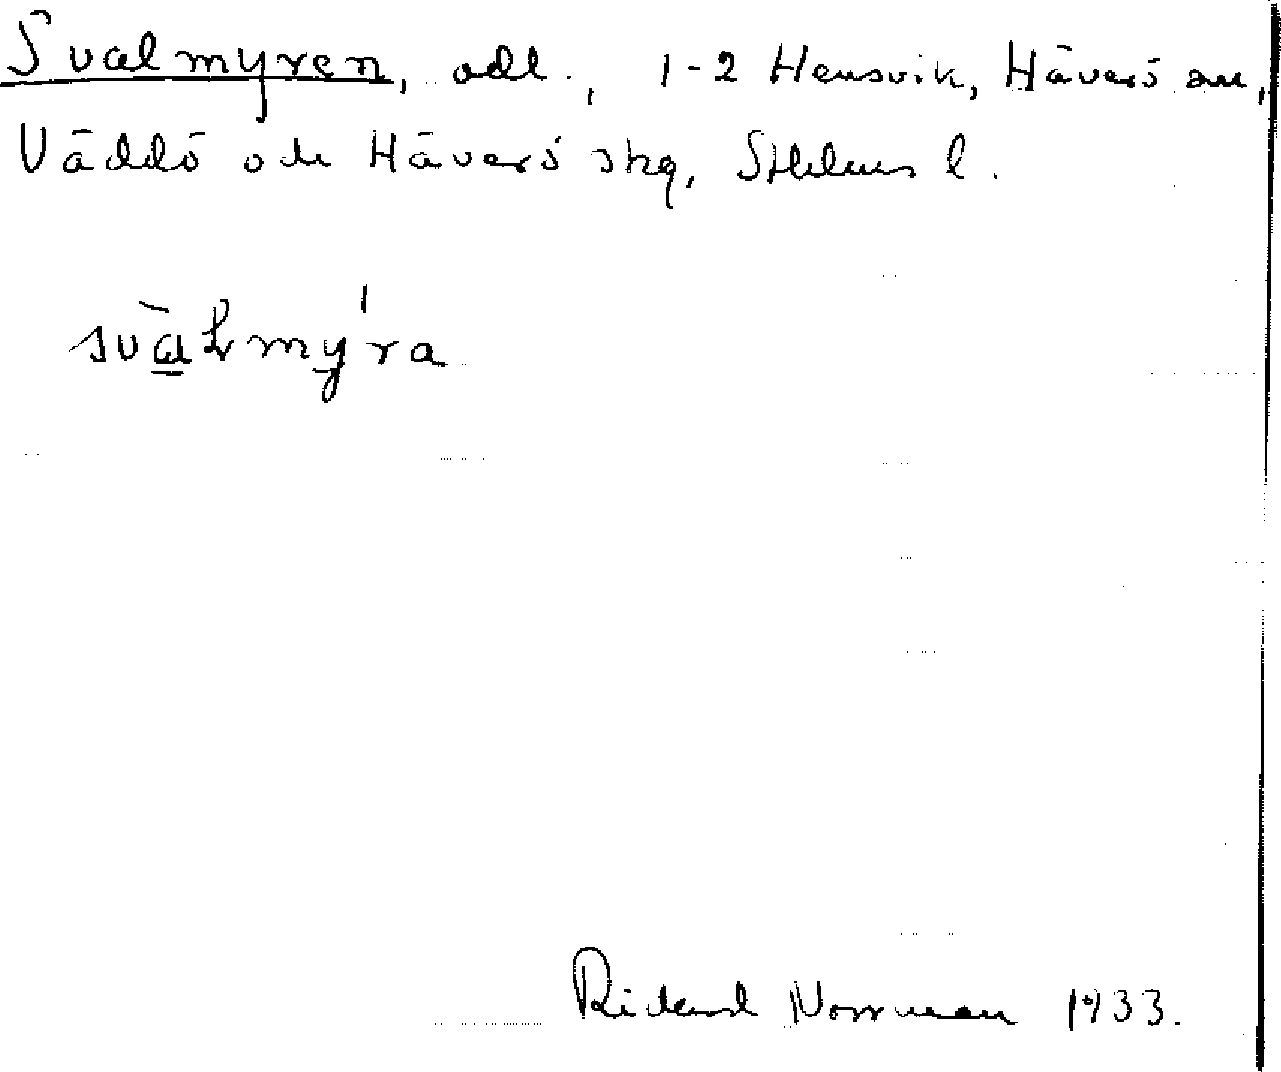 Svalmyren, odl., 1-2 Hensvik, Häverö sn,
Väddö och Häverö skg, Sthlms l.
svàlmy'ra
Rickard Norrman 1933.